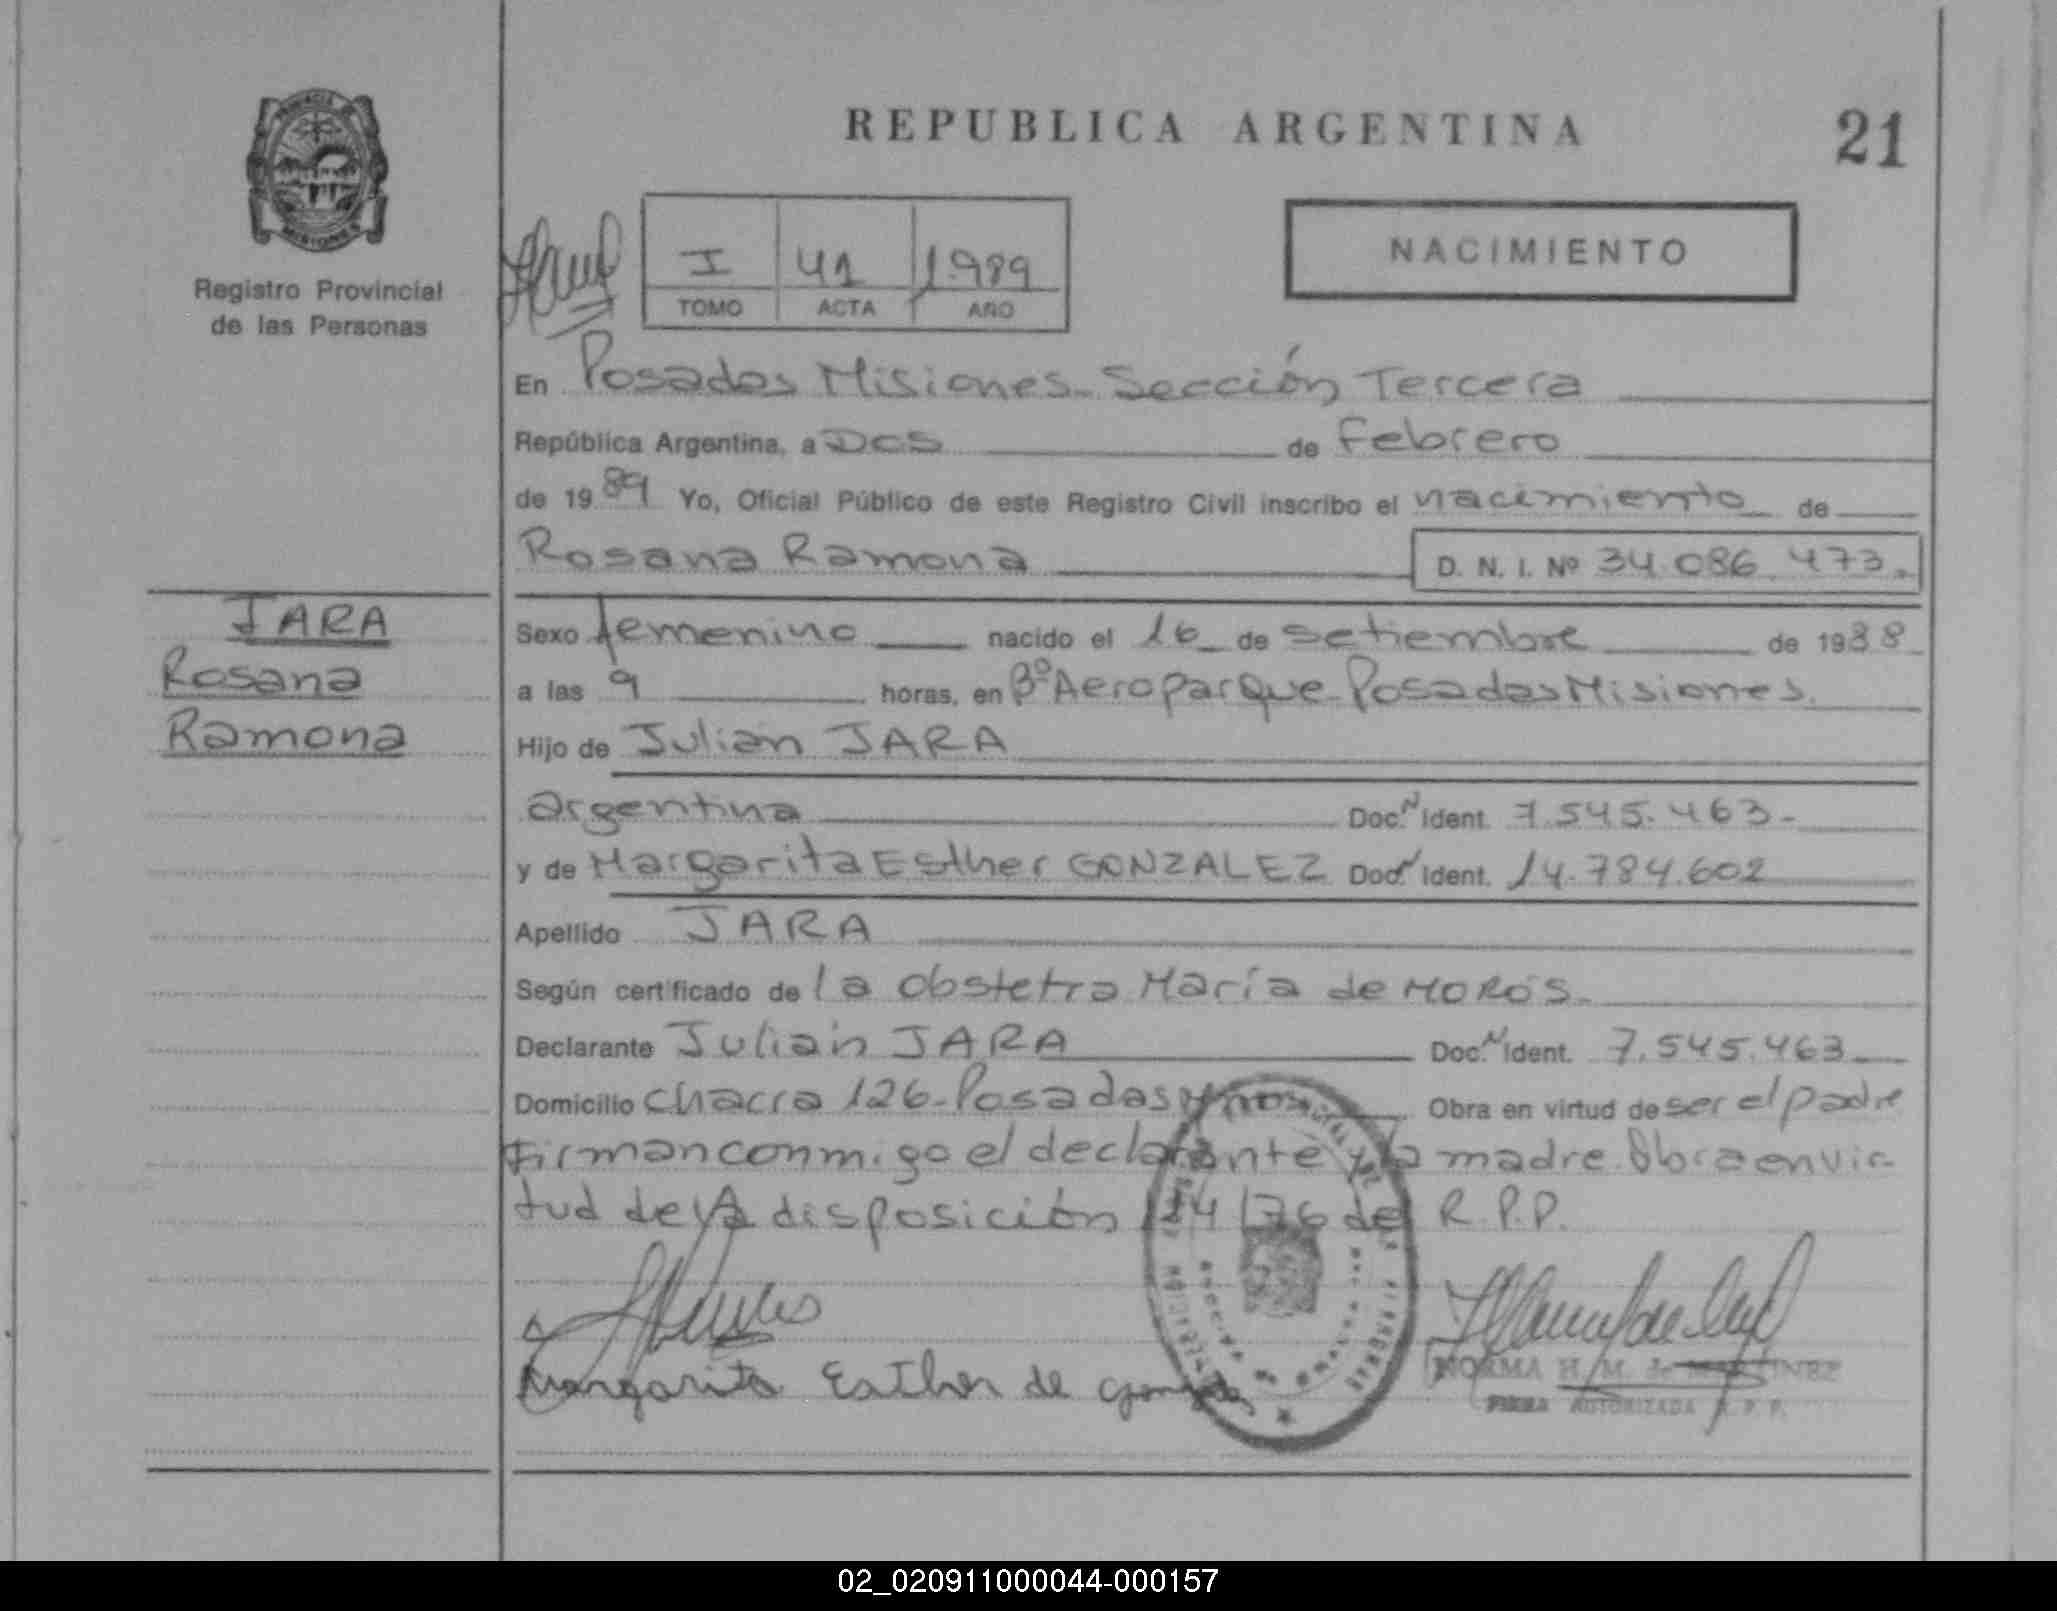 REPUBLICA ARGENTINA
21
MISIONES
Registro Provincial
de las Personas
I 41 1989
TOMO ACTA AÑO
NACIMIENTO
En Posadas Misiones - Sección Tercera
República Argentina, a Dos de Febrero
de 1989 Yo, Oficial Público de este Registro Civil inscribo el nacimiento de
Rosana Ramona D. N. I. Nº 34.086.473.
JARA
Rosana
Ramona
Sexo femenino nacido el 16 de setiembre de 1988
a las 9 horas, en Bº Aeroparque Posadas Misiones.
Hijo de Julián JARA
argentina Doc. N Ident. 7.545.463-
y de Margarita Esther GONZALEZ Doc. N Ident. 14.784.602
Apellido JARA
Según certificado de la obstetra María de MOROS.
Declarante Julián JARA Doc. N Ident. 7.545.463
Domicilio chacra 126-Posadas Mnes. Obra en virtud de ser el padre
firman conmigo el declarante y la madre. Obra en vir-
tud de la disposición 14/76 del R.P.P.
Margarita Esther de
NORMA H. M. de MARTINEZ
FIRMA AUTORIZADA R. P. P.
02_020911000044-000157